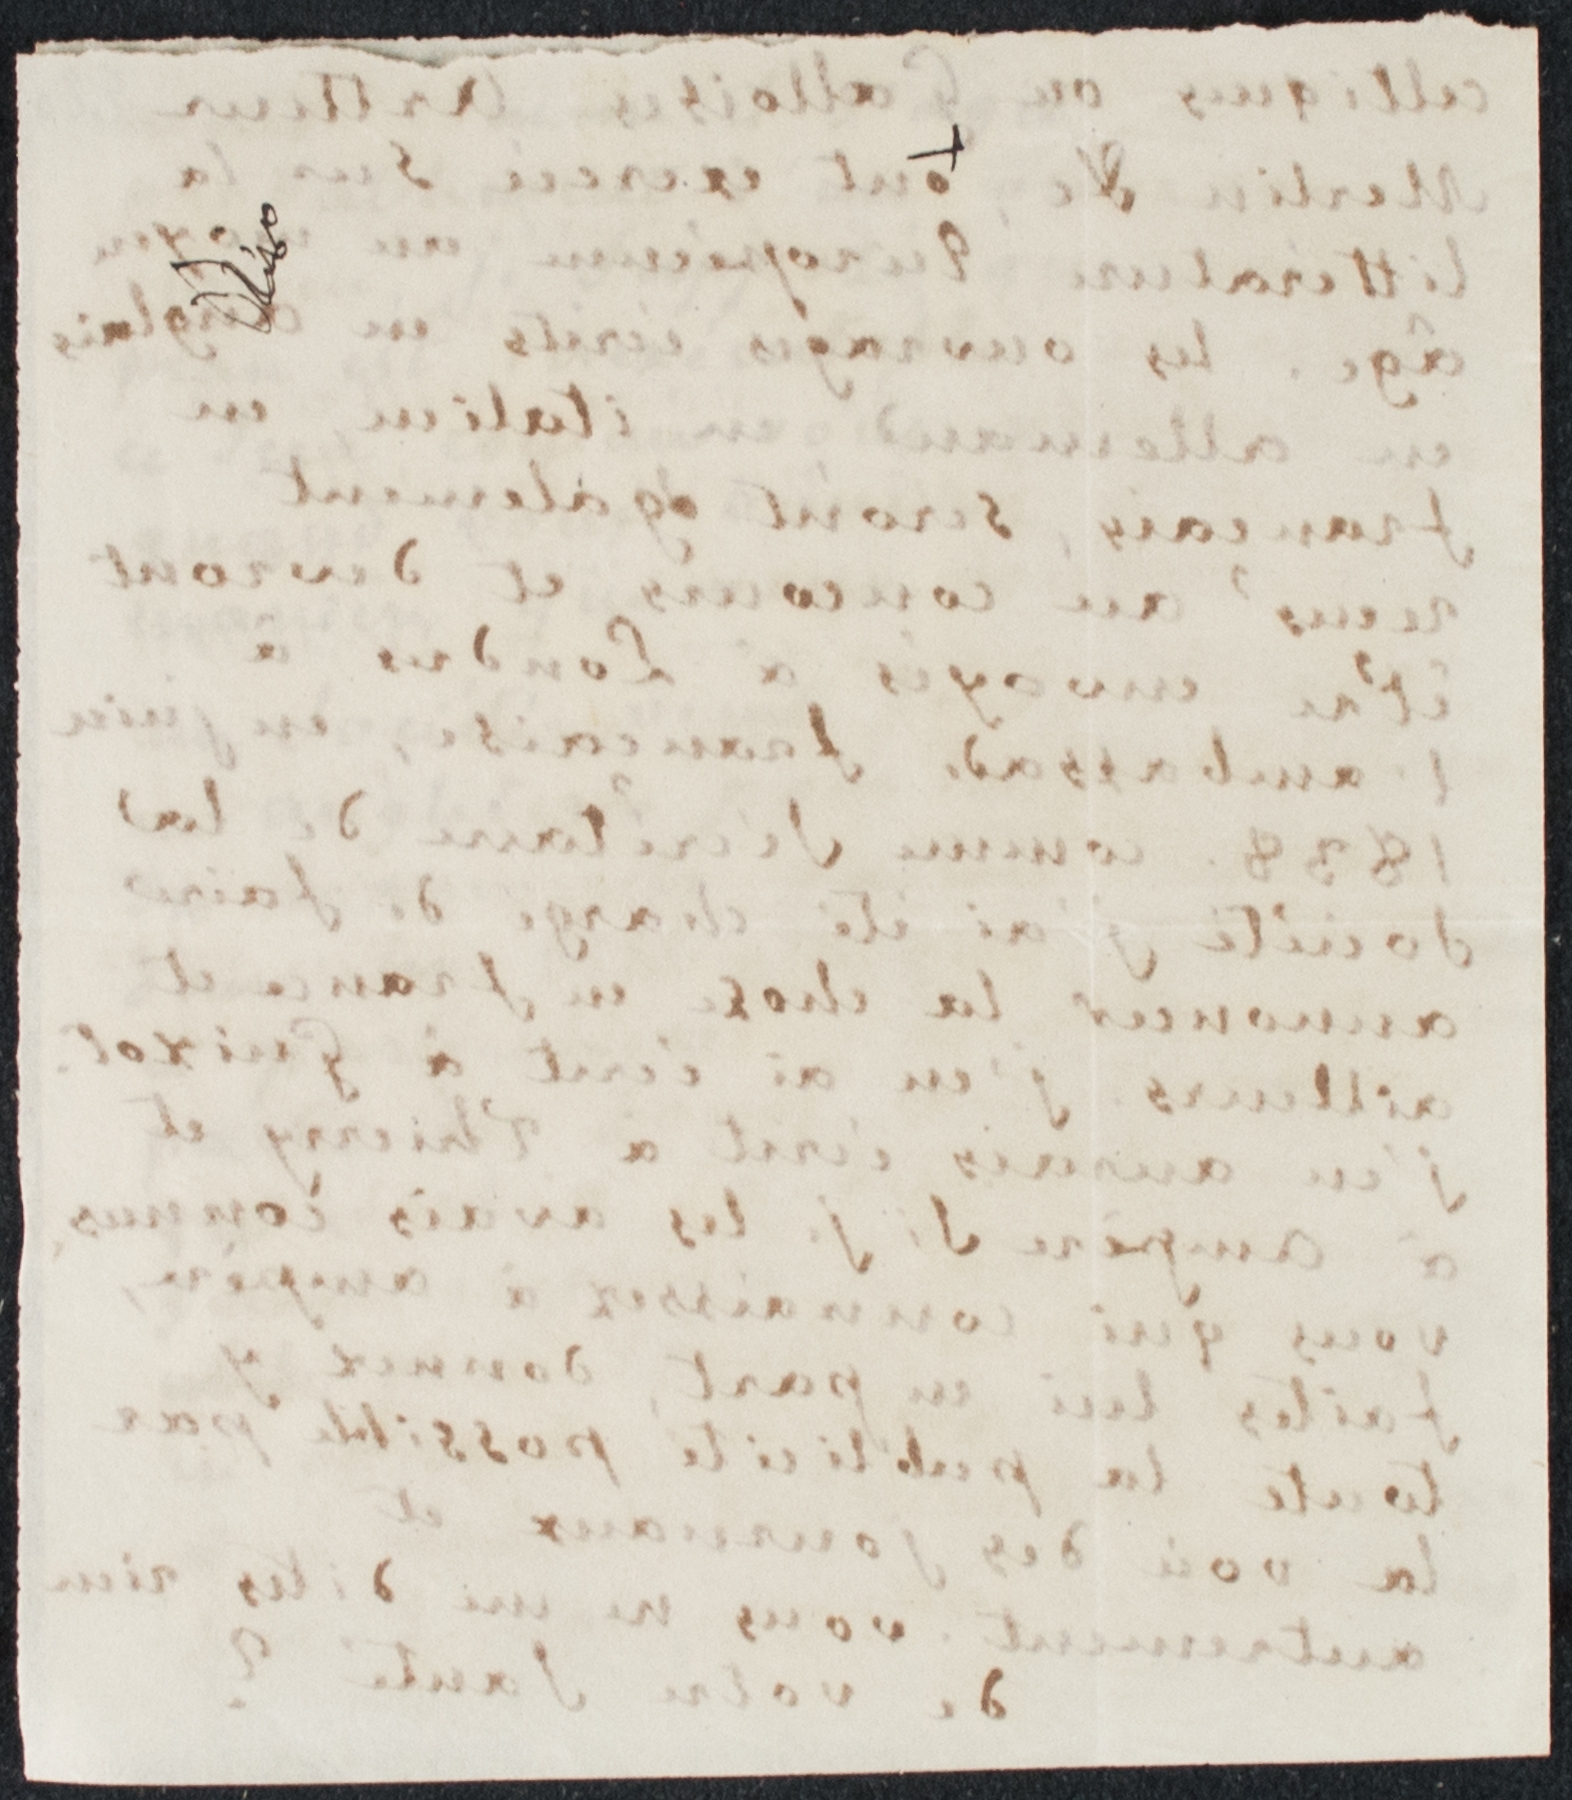 celtiques ou Galloises Arthur
Merlin &c, ont exercée sur la
littérature Européenne au moyen
âge. les ouvrages écrits en anglais
en allemand en italien, en
français, seront également
reçus au concours et devront
être envoyés à Londres à
l'ambassade française, en juin
1838. comme Sécrétaire de la
Société j'ai été chargé de faire
annoncer la chose en france et
ailleurs. j'en ai écrit à Guizot.
j'en aurais écrit à Thierry et
à ampère Si je les avais connus,
vous qui connaissez à ampère,
faites lui en part, donnez y
toute la publicité possible par
la voie des journaux et
autrement. vous ne me dites rien
de votre Santé ?